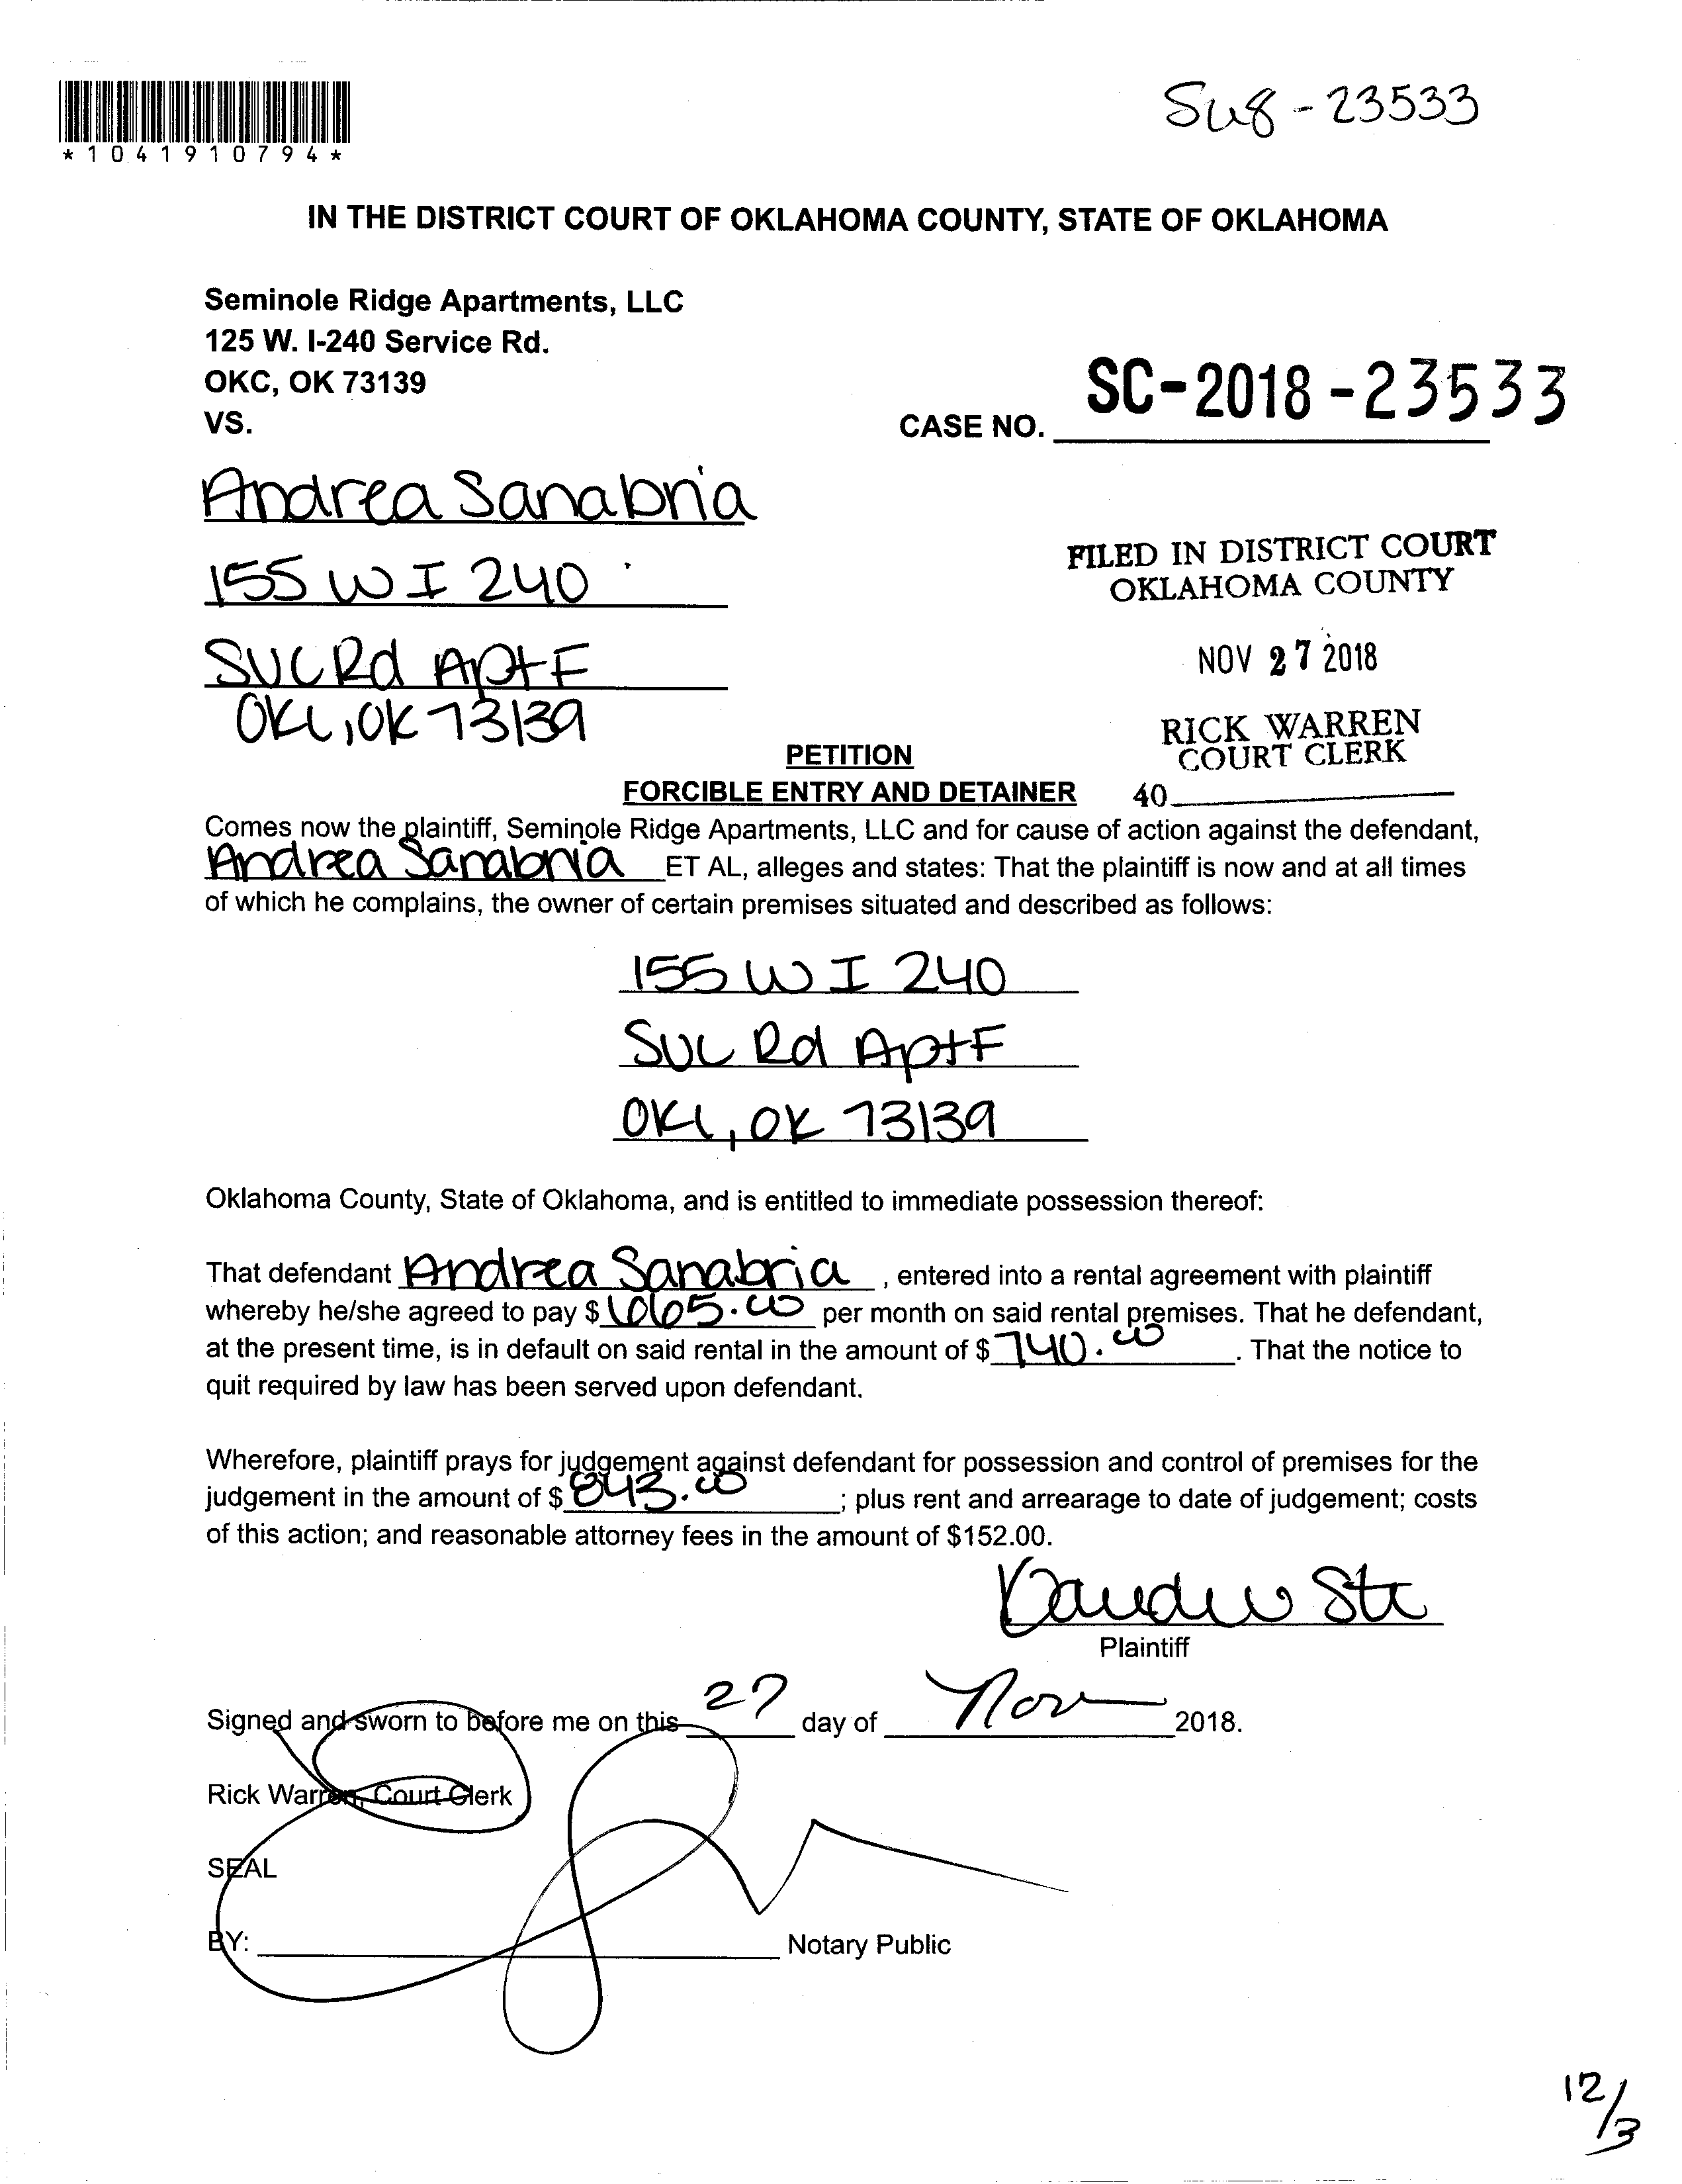 Su8-23533
*1041910794*
IN THE DISTRICT COURT OF OKLAHOMA COUNTY, STATE OF OKLAHOMA
Seminole Ridge Apartments, LLC
125 W. I-240 Service Rd.
OKC, OK 73139
VS.
CASE NO. SC-2018-23533
Andrea Sanabria
155 W I 240
SVC Rd Apt F
OKC, OK 73139
FILED IN DISTRICT COURT
OKLAHOMA COUNTY
NOV 27 2018
RICK WARREN
COURT CLERK
40
PETITION
FORCIBLE ENTRY AND DETAINER
Comes now the plaintiff, Seminole Ridge Apartments, LLC and for cause of action against the defendant,
Andrea Sanabria ET AL, alleges and states: That the plaintiff is now and at all times
of which he complains, the owner of certain premises situated and described as follows:
155 W I 240
SVC Rd Apt F
OKC, OK 73139
Oklahoma County, State of Oklahoma, and is entitled to immediate possession thereof:
That defendant Andrea Sanabria, entered into a rental agreement with plaintiff
whereby he/she agreed to pay $ 665.00 per month on said rental premises. That he defendant,
at the present time, is in default on said rental in the amount of $ 740.00. That the notice to
quit required by law has been served upon defendant.
Wherefore, plaintiff prays for judgement against defendant for possession and control of premises for the
judgement in the amount of $ 843.00; plus rent and arrearage to date of judgement; costs
of this action; and reasonable attorney fees in the amount of $152.00.
Plaintiff
Signed and sworn to before me on this 27 day of Nov 2018.
Rick Warren, Court Clerk
SEAL
BY: Notary Public
12/3